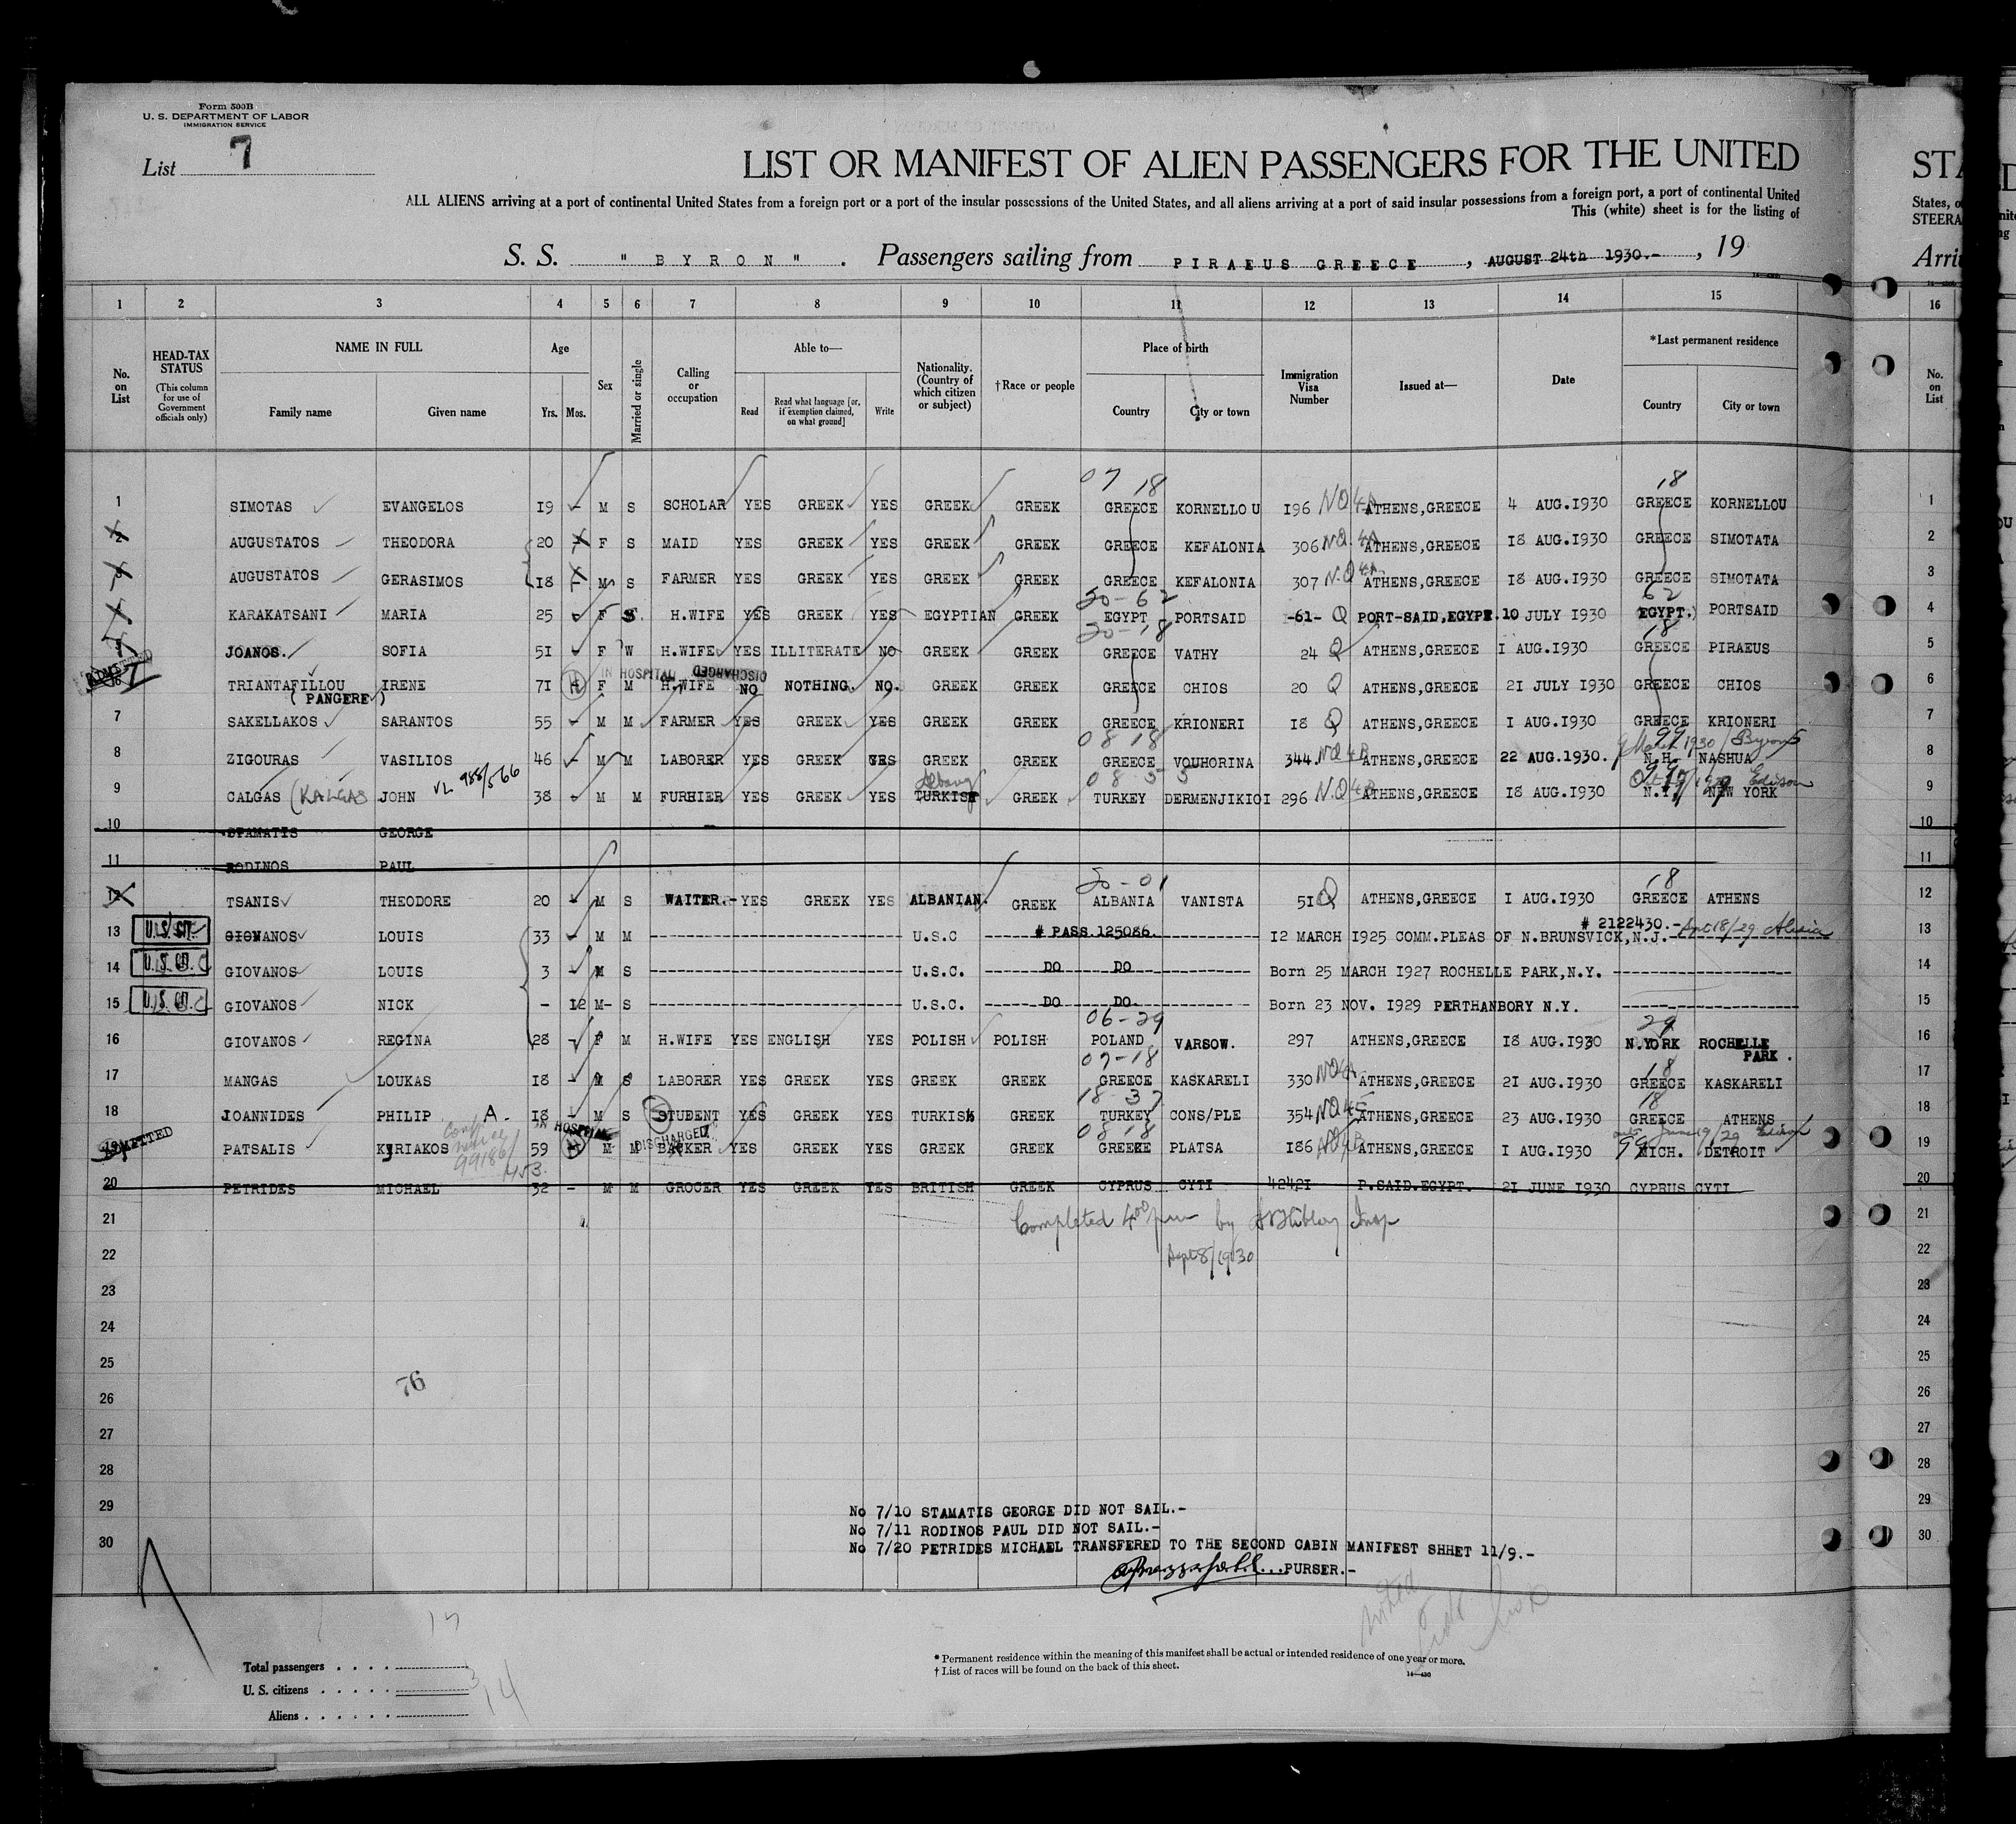 Form 500B
U. S. DEPARTMENT OF LABOR
IMMIGRATION SERVICE
List 7
LIST OR MANIFEST OF ALIEN PASSENGERS FOR THE UNITED
ALL ALIENS arriving at a port of continental United States from a foreign port or a port of the insular possessions of the United States, and all aliens arriving at a port of said insular possessions from a foreign port, a port of continental United
This (white) sheet is for the listing of
S. S. " BYRON " . Passengers sailing from PIRAEUS GREECE , AUGUST 24th 1930.- , 19
1 2 3 4 5 6 7 8 9 10 11 12 13 14 15
No. on List
HEAD-TAX STATUS
(This column for use of Government officials only)
NAME IN FULL
Family name Given name
Age
Yrs. Mos.
Sex
Married or single
Calling or occupation
Able to—
Read
Read what language [or, if exemption claimed, on what ground]
Write
Nationality. (Country of which citizen or subject)
†Race or people
Place of birth
Country City or town
Immigration Visa Number
Issued at—
Date
*Last permanent residence
Country City or town
07 18 18
1 SIMOTAS EVANGELOS 19 - M S SCHOLAR YES GREEK YES GREEK GREEK GREECE KORNELLOU 196 NQ 4A ATHENS,GREECE 4 AUG.1930 GREECE KORNELLOU
2 AUGUSTATOS THEODORA 20 - F S MAID YES GREEK YES GREEK GREEK GREECE KEFALONIA 306 NQ 4A ATHENS,GREECE 18 AUG.1930 GREECE SIMOTATA
3 AUGUSTATOS GERASIMOS 18 - M S FARMER YES GREEK YES GREEK GREEK GREECE KEFALONIA 307 N.Q 4A ATHENS,GREECE 18 AUG.1930 GREECE SIMOTATA
20-62 62
4 KARAKATSANI MARIA 25 - F S H.WIFE YES GREEK YES EGYPTIAN GREEK EGYPT PORTSAID -61- Q PORT-SAID,EGYPT. 10 JULY 1930 EGYPT. PORTSAID
20-18 18
5 JOANOS. SOFIA 51 - F W H.WIFE YES ILLITERATE NO GREEK GREEK GREECE VATHY 24 Q ATHENS,GREECE 1 AUG.1930 GREECE PIRAEUS
ADMITTED IN HOSPITAL DISCHARGED
6 TRIANTAFILLOU IRENE 71 H F M H.WIFE NO NOTHING. NO. GREEK GREEK GREECE CHIOS 20 Q ATHENS,GREECE 21 JULY 1930 GREECE CHIOS
( PANGERE )
7 SAKELLAKOS SARANTOS 55 - M M FARMER YES GREEK YES GREEK GREEK GREECE KRIONERI 18 Q ATHENS,GREECE 1 AUG.1930 GREECE KRIONERI
08 18 99 March 1930 / Byron
8 ZIGOURAS VASILIOS 46 - M M LABORER YES GREEK YES GREEK GREEK GREECE VOUHORINA 344. NQ 4B ATHENS,GREECE 22 AUG.1930. N.H. NASHUA
VL 988/566 08 55 99 Edison
9 CALGAS (KALGAS JOHN 38 - M M FURHIER YES GREEK YES TURKISH GREEK TURKEY DERMENJIKIOI 296 N.Q 4B ATHENS,GREECE 18 AUG.1930 N.Y. NEW YORK
10 STAMATIS GEORGE
11 RODINOS PAUL
20-01 18
12 TSANIS THEODORE 20 - M S WAITER.- YES GREEK YES ALBANIAN. GREEK ALBANIA VANISTA 51 Q ATHENS,GREECE 1 AUG.1930 GREECE ATHENS
# 2122430.-
13 U.S. CIT. GIOVANOS LOUIS 33 - M M U.S.C # PASS.125086. 12 MARCH 1925 COMM.PLEAS OF N.BRUNSVICK,N.J.-
14 U.S. CIT. GIOVANOS LOUIS 3 - M S U.S.C. DO DO Born 25 MARCH 1927 ROCHELLE PARK,N.Y.
15 U.S. CIT. GIOVANOS NICK - 12 M- S U.S.C. DO DO. Born 23 NOV. 1929 PERTHANBORY N.Y.
06-29 29
16 GIOVANOS REGINA 28 - F M H.WIFE YES ENGLISH YES POLISH POLISH POLAND VARSOW. 297 ATHENS,GREECE 18 AUG.1930 N.YORK ROCHELLE PARK .
07-18 18
17 MANGAS LOUKAS 18 - M S LABORER YES GREEK YES GREEK GREEK GREECE KASKARELI 330 NQ4A ATHENS,GREECE 21 AUG.1930 GREECE KASKARELI
18 37 18
18 JOANNIDES PHILIP A. 18 - M S STUDENT YES GREEK YES TURKISH GREEK TURKEY CONS/PLE 354 NQ 4E ATHENS,GREECE 23 AUG.1930 GREECE ATHENS
ADMITTED IN HOSPITAL DISCHARGED 99186/453 08 18 99 June 9/29 Edison
19 PATSALIS KyRIAKOS 59 H M M BACKER YES GREEK YES GREEK GREEK GREECE PLATSA 186 NQ4B ATHENS,GREECE 1 AUG.1930 MICH. DETROIT
20 PETRIDES MICHAEL 32 - M M GROCER YES GREEK YES BRITISH GREEK CYPRUS CYTI 42421 P.SAID.EGYPT. 21 JUNE 1930 CYPRUS CYTI
21 Completed 4⁰⁰ pm by Insp
22 Sept 8/1930
23
24
25
76
26
27
28
29
No 7/10 STAMATIS GEORGE DID NOT SAIL.-
No 7/11 RODINOS PAUL DID NOT SAIL.-
30
No 7/20 PETRIDES MICHAEL TRANSFERED TO THE SECOND CABIN MANIFEST SHHET 11/9.-
...PURSER.-
17
Total passengers
U. S. citizens 3
Aliens 14
* Permanent residence within the meaning of this manifest shall be actual or intended residence of one year or more.
† List of races will be found on the back of this sheet.
14—430
STA
States, o
STEERA
Arri
16
No. on List
1
2
3
4
5
6
7
8
9
10
11
12
13
14
15
16
17
18
19
20
21
22
23
24
25
26
27
28
29
30